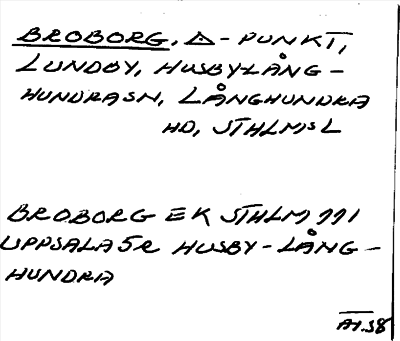 BROBORG, △-PUNKT,
LUNDBY, HUSBY-LÅNG-
HUNDRA SN, LÅNGHUNDRA
HD, STHLMS L
BROBORG EK STHLM 111
UPPSALA 5R HUSBY-LÅNG-
HUNDRA